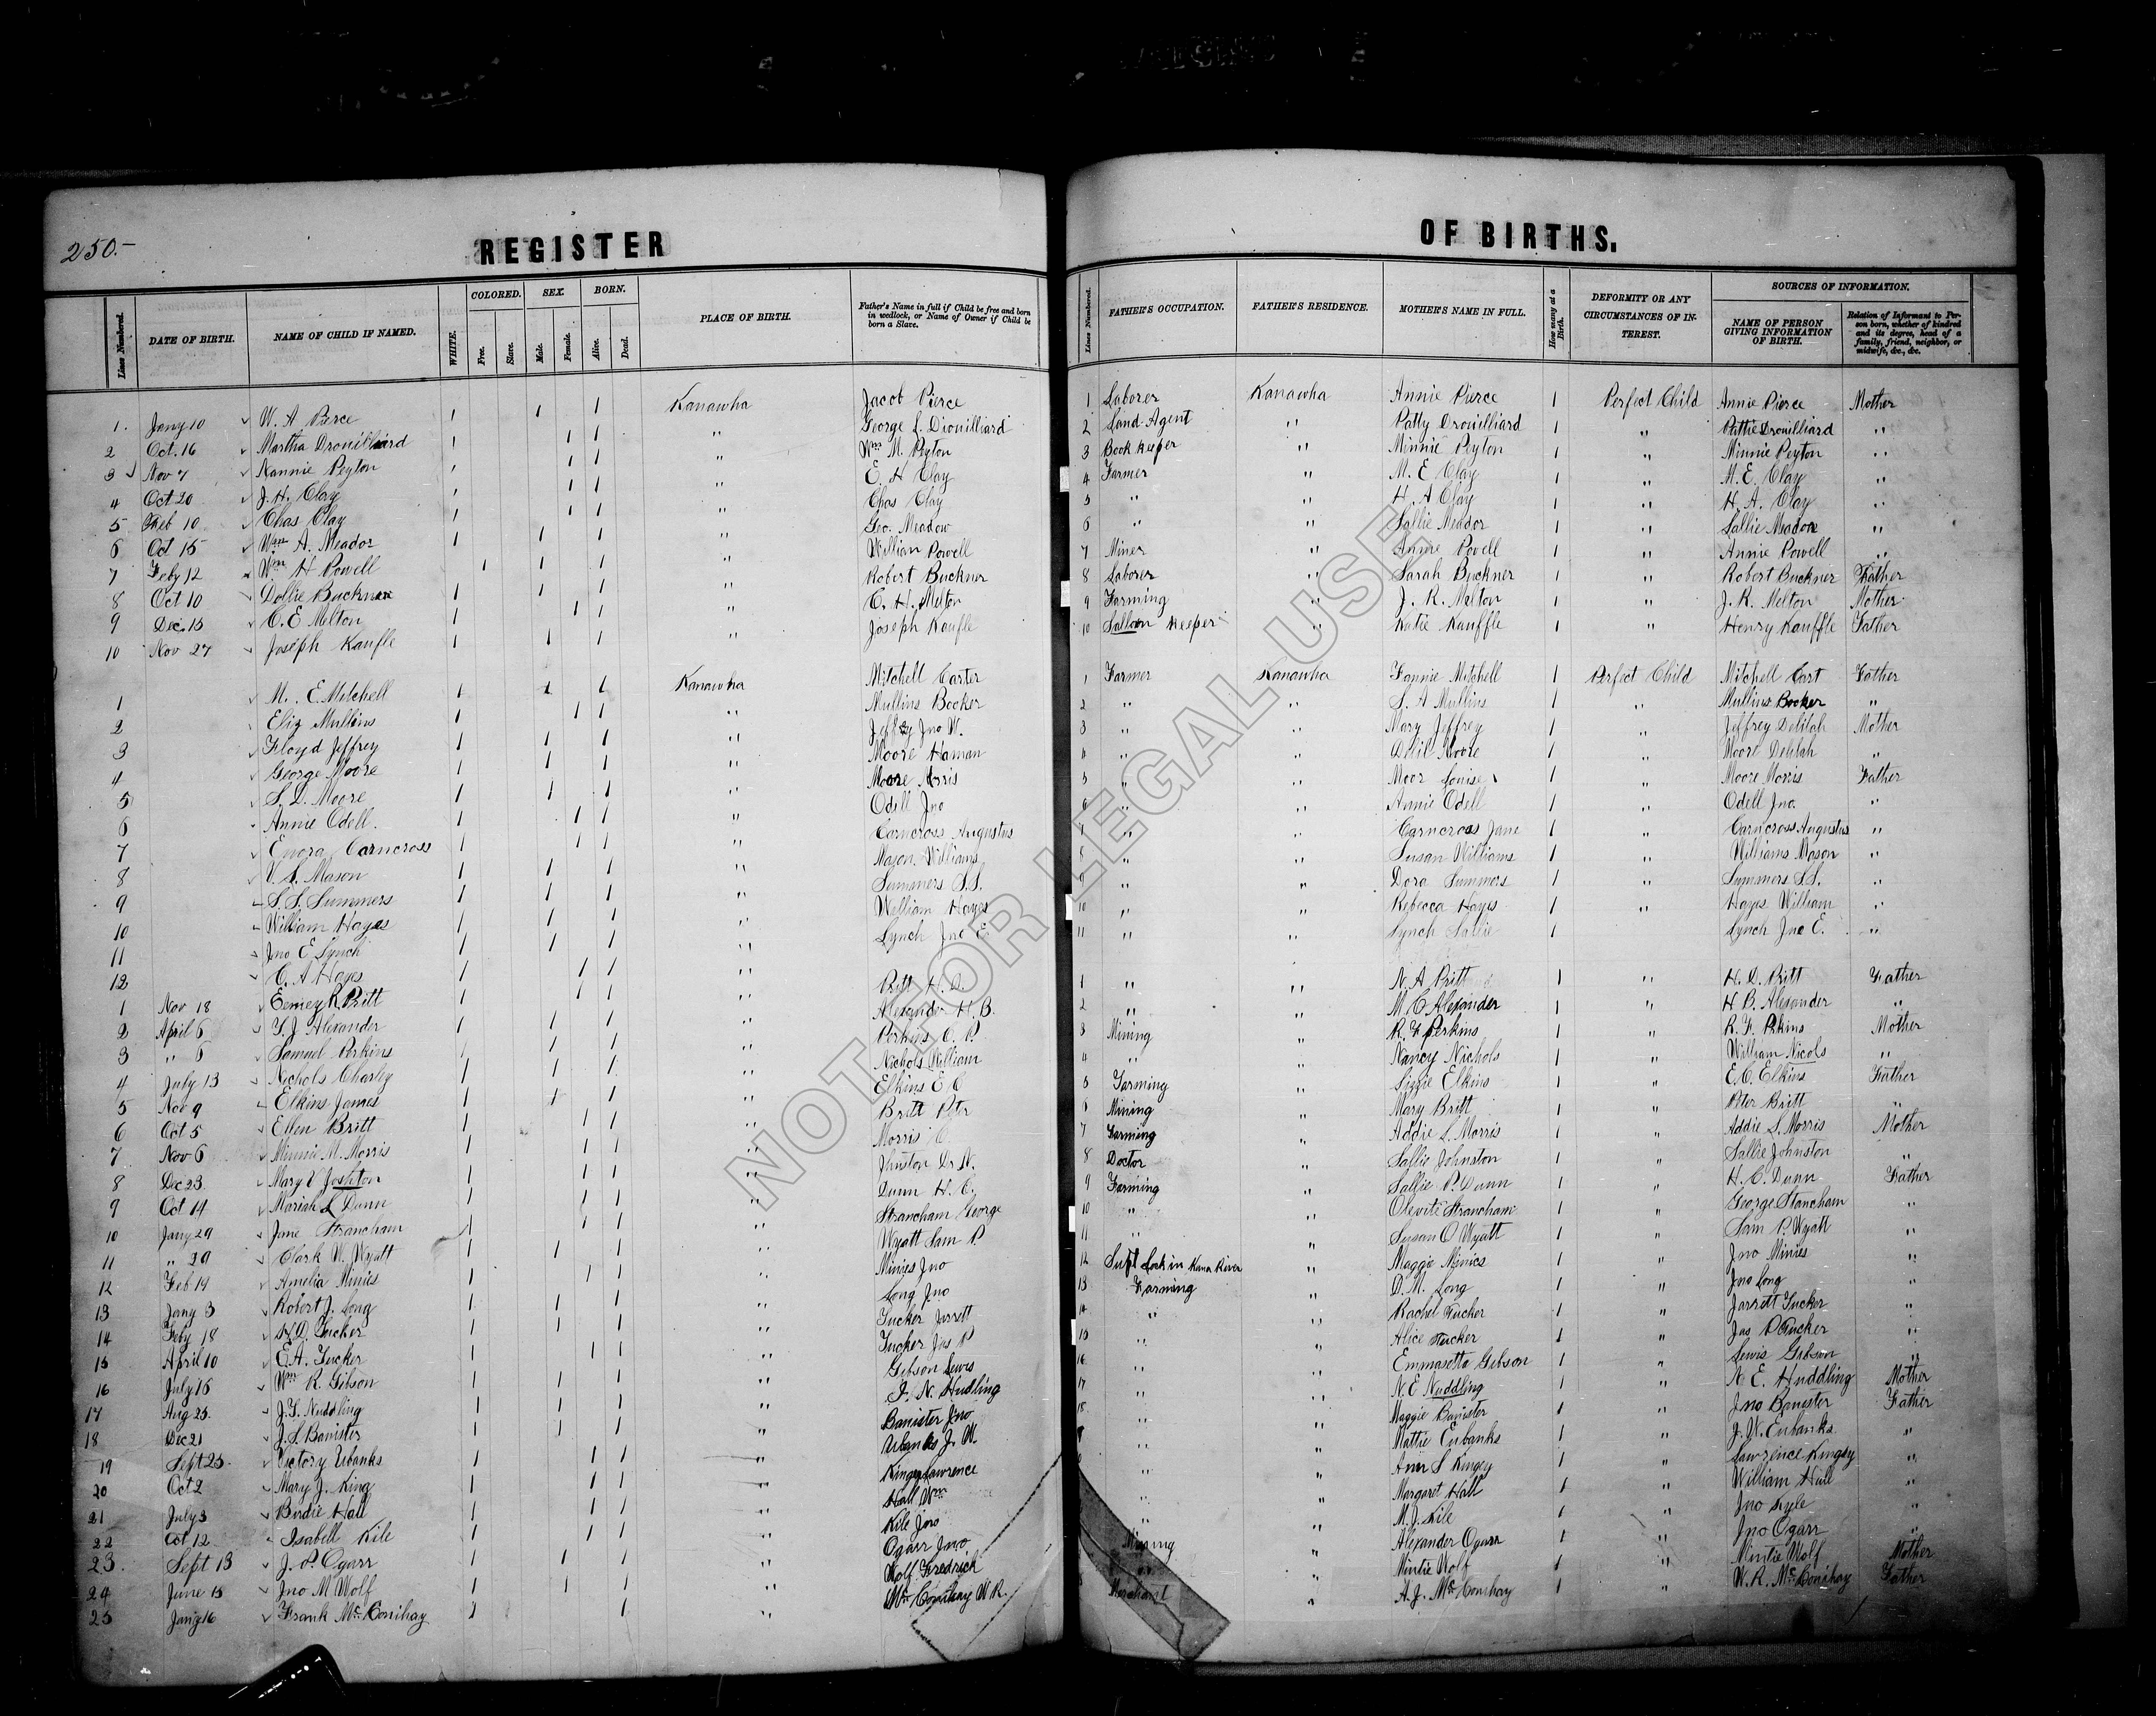 250.-
REGISTER
OF BIRTHS.
Lines Numbered. DATE OF BIRTH. NAME OF CHILD IF NAMED. WHITE. COLORED. Free. Slave. SEX. Male. Female. BORN. Alive. Dead. PLACE OF BIRTH. Father's Name in full if Child be free and born in wedlock, or Name of Owner if Child be born a Slave.
Lines Numbered. FATHER'S OCCUPATION. FATHER'S RESIDENCE. MOTHER'S NAME IN FULL. How many at a Birth. DEFORMITY OR ANY CIRCUMSTANCES OF INTEREST. SOURCES OF INFORMATION. NAME OF PERSON GIVING INFORMATION OF BIRTH. Relation of Informant to Person born, whether of kindred and its degree, head of a family, friend, neighbor, or midwife, &c., &c.
1. Jany 10 W. A Pierce 1 1 1 Kanawha Jacob Pierce 1 Laborer Kanawha Annie Pierce 1 Perfect Child Annie Pierce Mother
2 Oct. 16 Martha Drouilliard 1 1 1 " George L. Drouilliard 2 Land Agent " Patty Drouilliard 1 " Pattie Drouilliard "
3 Nov 7 Nannie Peyton 1 1 1 " Wm M. Peyton 3 Book keeper " Minnie Peyton 1 " Minnie Peyton "
4 Oct 20 J. H. Clay 1 1 1 " E. H Clay 4 Farmer " M. E Clay 1 " M. E. Clay "
5 Feb 10 Chas Clay 1 1 1 " Chas Clay 5 " " H. A Clay 1 " H. A. Clay "
6 Oct 15 Wm A. Meador 1 1 1 " Geo. Meadow 6 " " Sallie Meador 1 " Sallie Meador "
7 Feby 12 Wm H Powell 1 1 1 " William Powell 7 Miner " Annie Powell 1 " Annie Powell "
8 Oct 10 Dollie Buckner 1 1 1 " Robert Buckner 8 Laborer " Sarah Buckner 1 " Robert Buckner Father
9 Dec. 15 C. E Melton 1 1 1 " C. H. Melton 9 Farming " J. R. Melton 1 " J. R. Melton Mother
10 Nov 27 Joseph Kaufle 1 1 1 " Joseph Kaufle 10 Salloon Keeper " Katie Kauffle 1 " Henry Kauffle Father
1 M. E Mitchell 1 1 1 Kanawha Mitchell Carter 1 Farmer Kanawha Fannie Mitchell 1 Perfect Child Mitchell Cart Father
2 Eliz Mullins 1 1 1 " Mullins Booker 2 " " S. A Mullins 1 " Mullins Booker "
3 Floyd Jeffrey 1 1 1 " Jeffrey Jno W. 3 " " Mary Jeffrey 1 " Jeffrey Delilah Mother
4 George Moore 1 1 1 " Moore Haman 4 " " Moore 1 " Moore Delilah "
5 S. L. Moore 1 1 1 " Moore Morris 5 " " Moor Louise 1 " Moore Morris Father
6 Annie Odell. 1 1 1 " Odell Jno 6 " " Annie Odell 1 " Odell Jno. "
7 Enora Carncross 1 1 1 " Carncross Augustus 7 " " Carncross Jane 1 " Carncross Augustus "
8 V. S. Mason 1 1 1 " Mason Williams 8 " " Susan Williams 1 " Williams Mason "
9 S. S. Summers 1 1 1 " Summers S.S. 9 " " Dora Summers 1 " Summers S.S. "
10 William Hayes 1 1 1 " William Hayes 10 " " Rebecca Hayes 1 " Hayes William "
11 Jno E Lynch 1 1 1 " Lynch Jno E. 11 " " Lynch Sallie 1 Lynch Jno E. "
12 C. A Hayes 1 1 1 "
1 Nov 18 R. Pritt 1 1 1 " Pritt H. D. 1 " " N. A Pritt 1 " H. D. Pritt Father
2 April 6 Y. J Alexander 1 1 1 " Alexander H. B. 2 " " M. C Alexander 1 " H B. Alexander "
3 " 6 Samuel Perkins 1 1 " Perkins C. P. 3 Mining " R. F Perkins 1 " R. F. Pekins Mother
4 July 13 Nichols Charley 1 1 1 " Nichols William 4 " " Nancy Nichols 1 " William Nicols "
5 Nov 9 Elkins James 1 1 1 " Elkins E C 5 Farming " Lizzie Elkins 1 " E. C. Elkins Father
6 Oct 5 Ellen Britt 1 1 1 " Britt Peter 6 Mining " Mary Britt 1 " Peter Britt "
7 Nov 6 Minnie M. Morris 1 1 1 " Morris C. 7 Farming " Addie L. Morris 1 " Addie L. Morris Mother
8 Dec 23. Mary V Joshton 1 1 1 " Jhnston Dr N. 8 Doctor " Sallie Johnston 1 " Sallie Johnston "
9 Oct 14 Mariah L Dunn 1 1 1 " Dunn H. C. 9 Farming " Sallie P. Dunn 1 " H. C. Dunn Father
10 Jany 29 Jane Strancham 1 1 1 " Strancham George 10 " " Strancham 1 " George Stancham "
11 " 29 Clark W. Wyatt 1 1 1 " Wyatt Sam P. 11 " " Susan O Wyatt 1 " Sam P. Wyatt "
12 Feb 19 Amelia Minies 1 1 1 " Minies Jno 12 Supt Lock in Kana River " Maggie Minies 1 " Jno Minies "
13 Jany 3 Robert J. Long 1 1 1 " Long Jno 13 Farming " D. M. Long 1 " Jno Long "
14 Feby 18 H. D. Tucker 1 1 1 " Tucker Jarrett 14 " " Rachel Tucker 1 " Jarritt Tucker "
15 April 10 E. A. Tucker 1 1 1 " Tucker Jas P 15 " " Alice Tucker 1 " Jas P Tucker "
16 July 15 Wm R. Gibson 1 1 1 " Gibson Lewis 16 " " Emmasetta Gibson 1 " Lewis Gibson "
17 Aug 25. J. T. Nuddling 1 1 1 " J. N. Hudling 17 " " N. E Nuddling 1 " N E. Huddling Mother
18 Dec 21 J. S. Banister 1 1 1 " Banister Jno 18 " " Maggie Banister 1 " Jno Banister Father
19 Sept 25. Victory Ubanks 1 1 1 " Ubanks J. W. " " Mattie Eubanks 1 " J. W. Eubanks "
20 Oct 2 Mary J. King 1 1 1 " Kingey Lawrence " " Ann S Kingey 1 " Lawrence Kingey "
21 July 3 Birdie Hall 1 1 1 " Hall Wm " " Margaret Hall 1 " William Hall "
22 Oct 12 Isabell Kile 1 1 1 " Kile Jno " " M. J. Kile 1 " Jno Kyle "
23. Sept 13 J. P. Ogarr 1 1 1 " Ogarr Jno Mining " Alexander Ogarr 1 " Jno Ogarr "
24 June 15 Jno M Wolf 1 1 1 " Wolf Fredrick " " Mintie Wolf 1 " Mintie Wolf Mother
25 Jany 16 Frank McConihay 1 1 " McConihay W R. Merchant " A. J. McConihay 1 " W. R. McConihay Father
NOT FOR LEGAL USE